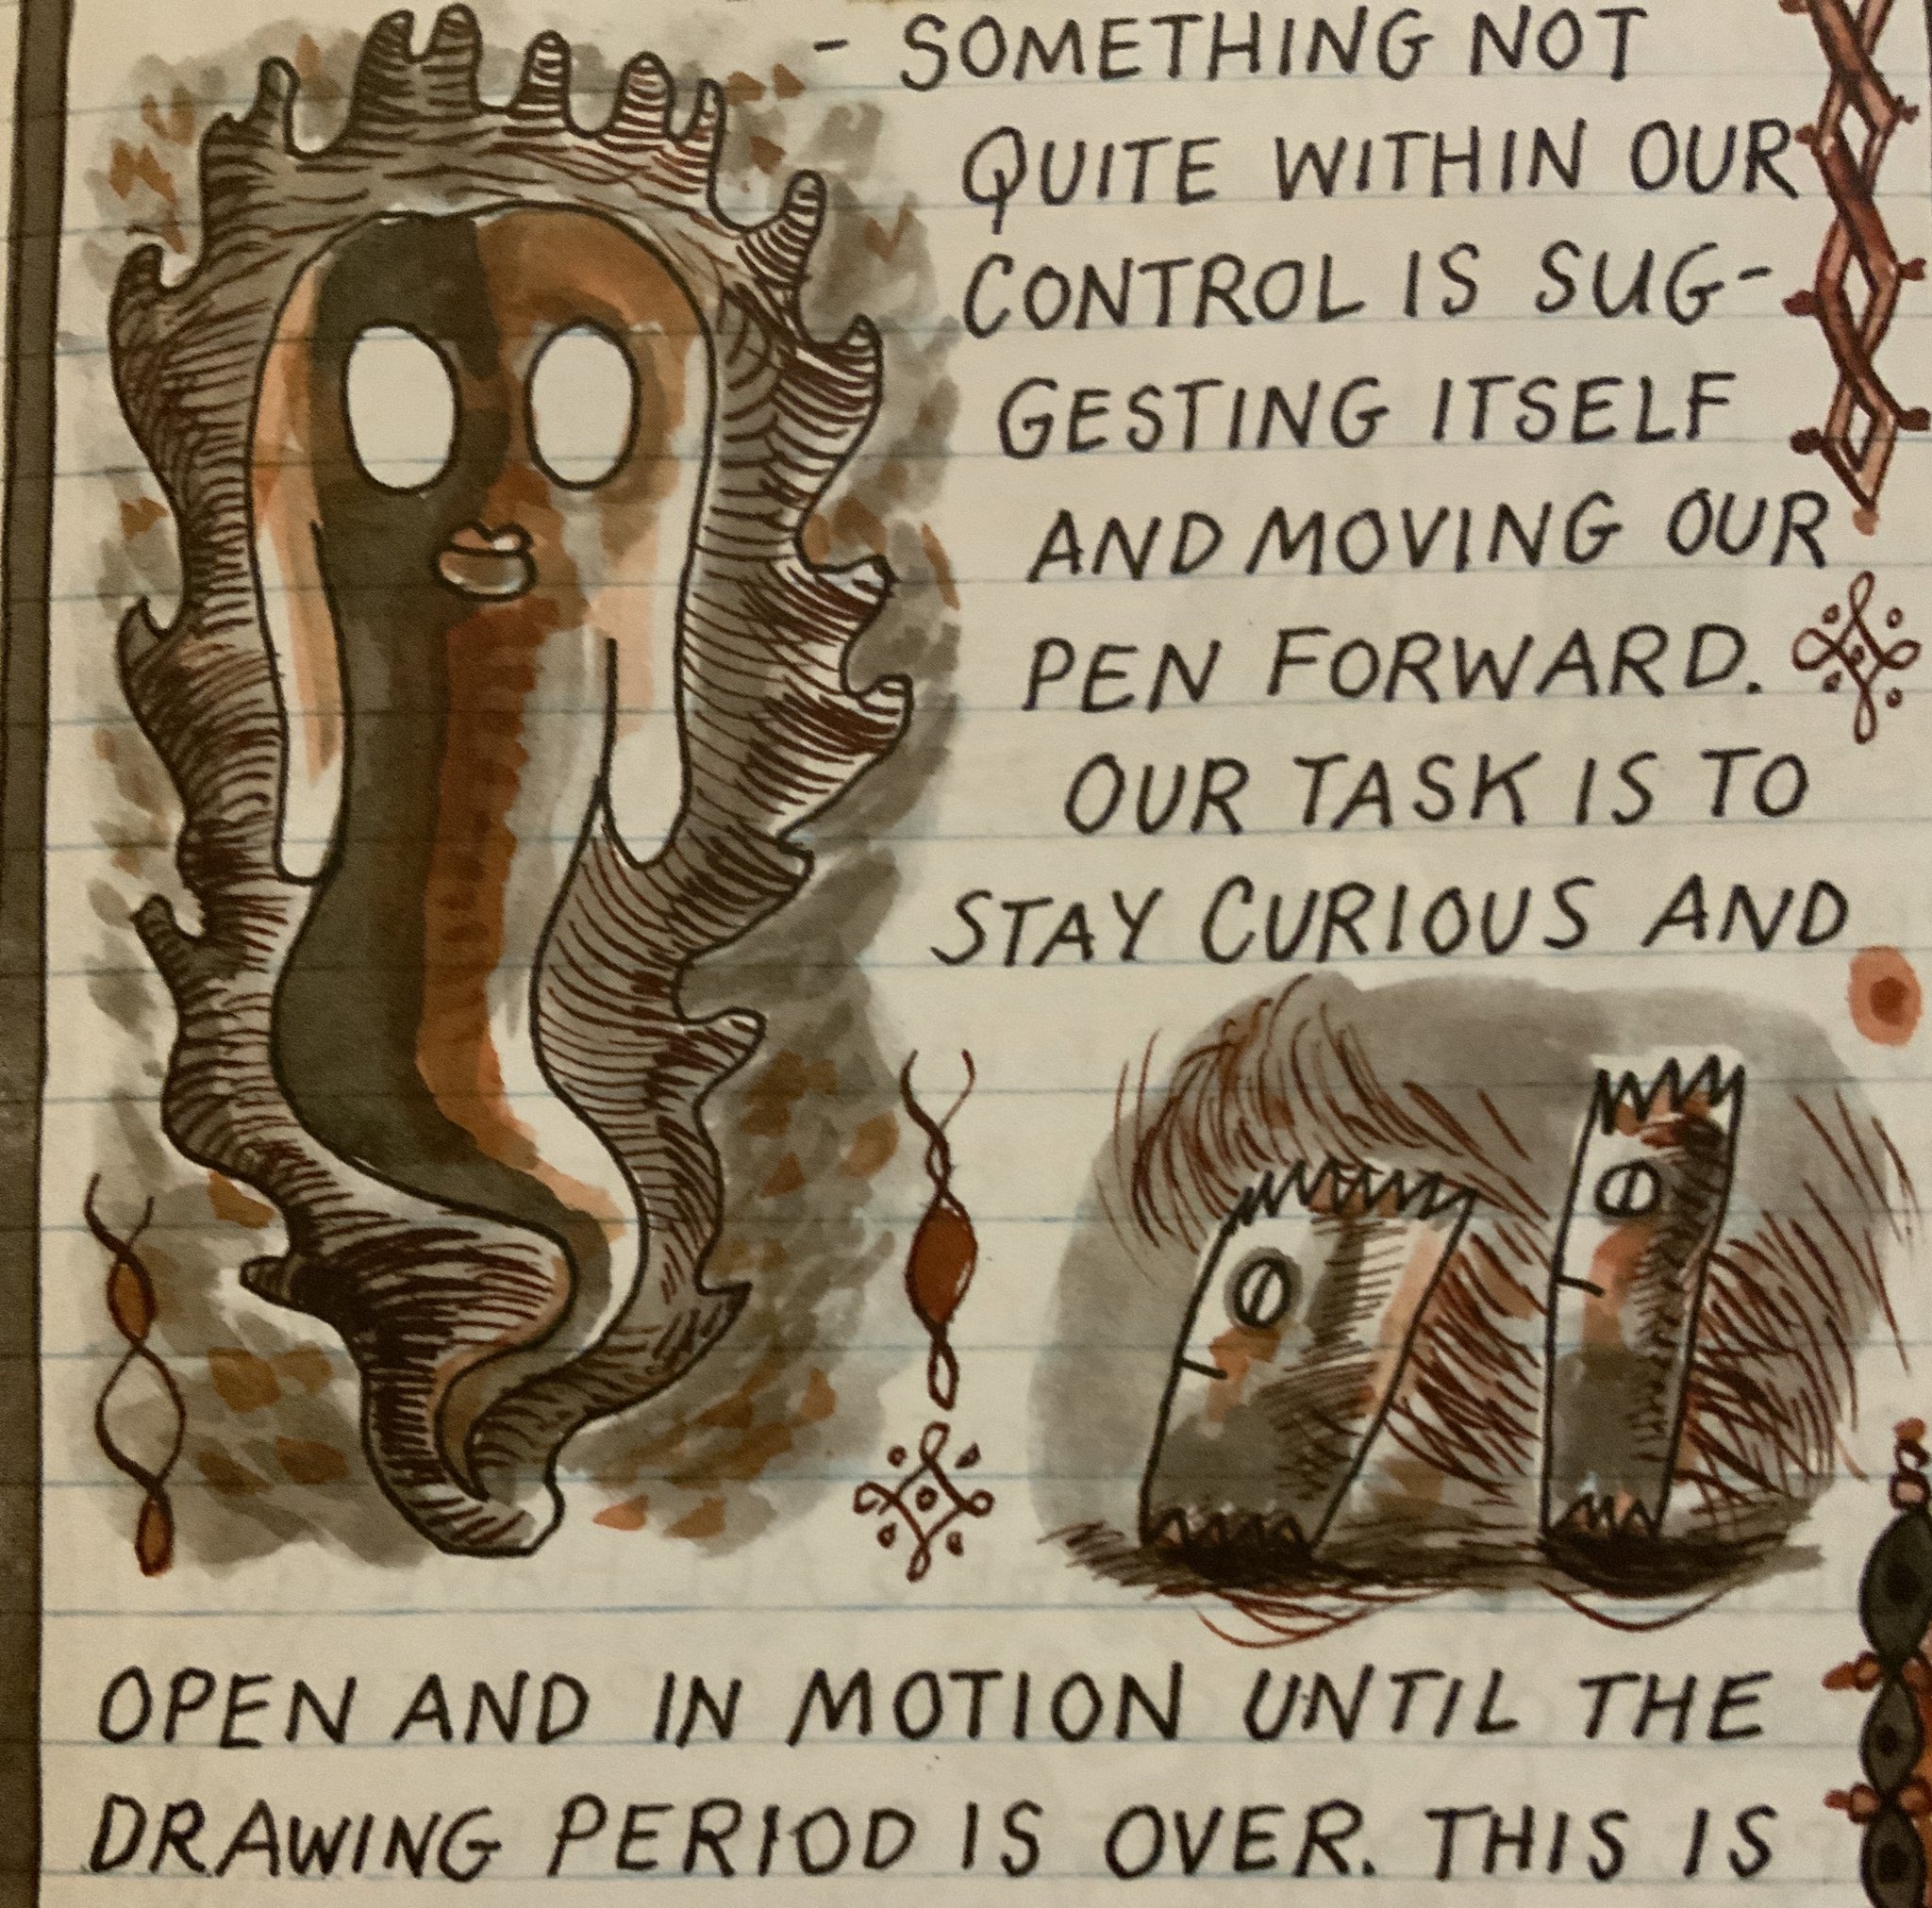 - SOMETHING NOT
QUITE WITHIN OUR
CONTROL IS SUG-
GESTING ITSELF
AND MOVING OUR
PEN FORWARD.
OUR TASK IS TO
STAY CURIOUS AND
OPEN AND IN MOTION UNTIL THE
DRAWING PERIOD IS OVER. THIS IS